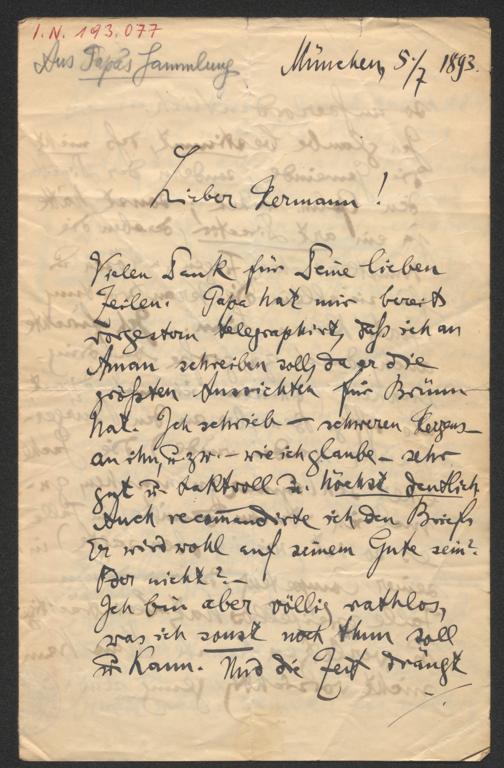 I.N. 193.077
Aus Papas Sammlung
München, 5./7 1893.
Lieber Hermann!
Vielen Dank für Deine lieben
Zeilen. Papa hat mir bereits
vorgestern telegraphirt, daß ich an
Aman schreiben soll, da er die
größten Aussichten für Brünn
hat. Ich schrieb – schweren Herzens –
an ihn, u. zw. – wie ich glaube – sehr
gut u. taktvoll u. höchst deutlich.
Auch recomandirte ich den Brief.
Er wird wohl auf seinem Gute sein?
Oder nicht? –
Ich bin aber völlig rathlos,
was ich sonst noch thun soll
u. kann. Und die Zeit drängt